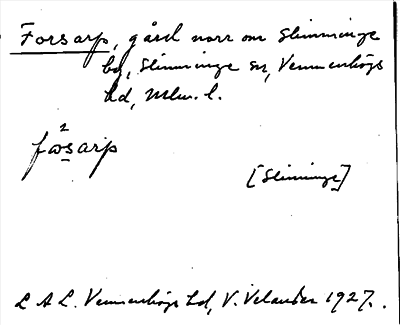 Forsarp, gård norr om Slimminge
by, Slimminge sn, Vemmenhögs
hd, Mlm. l.
2
fosarp
[Slimminge]
L A L. Vemmenhögs hd, V. Velander 1927.